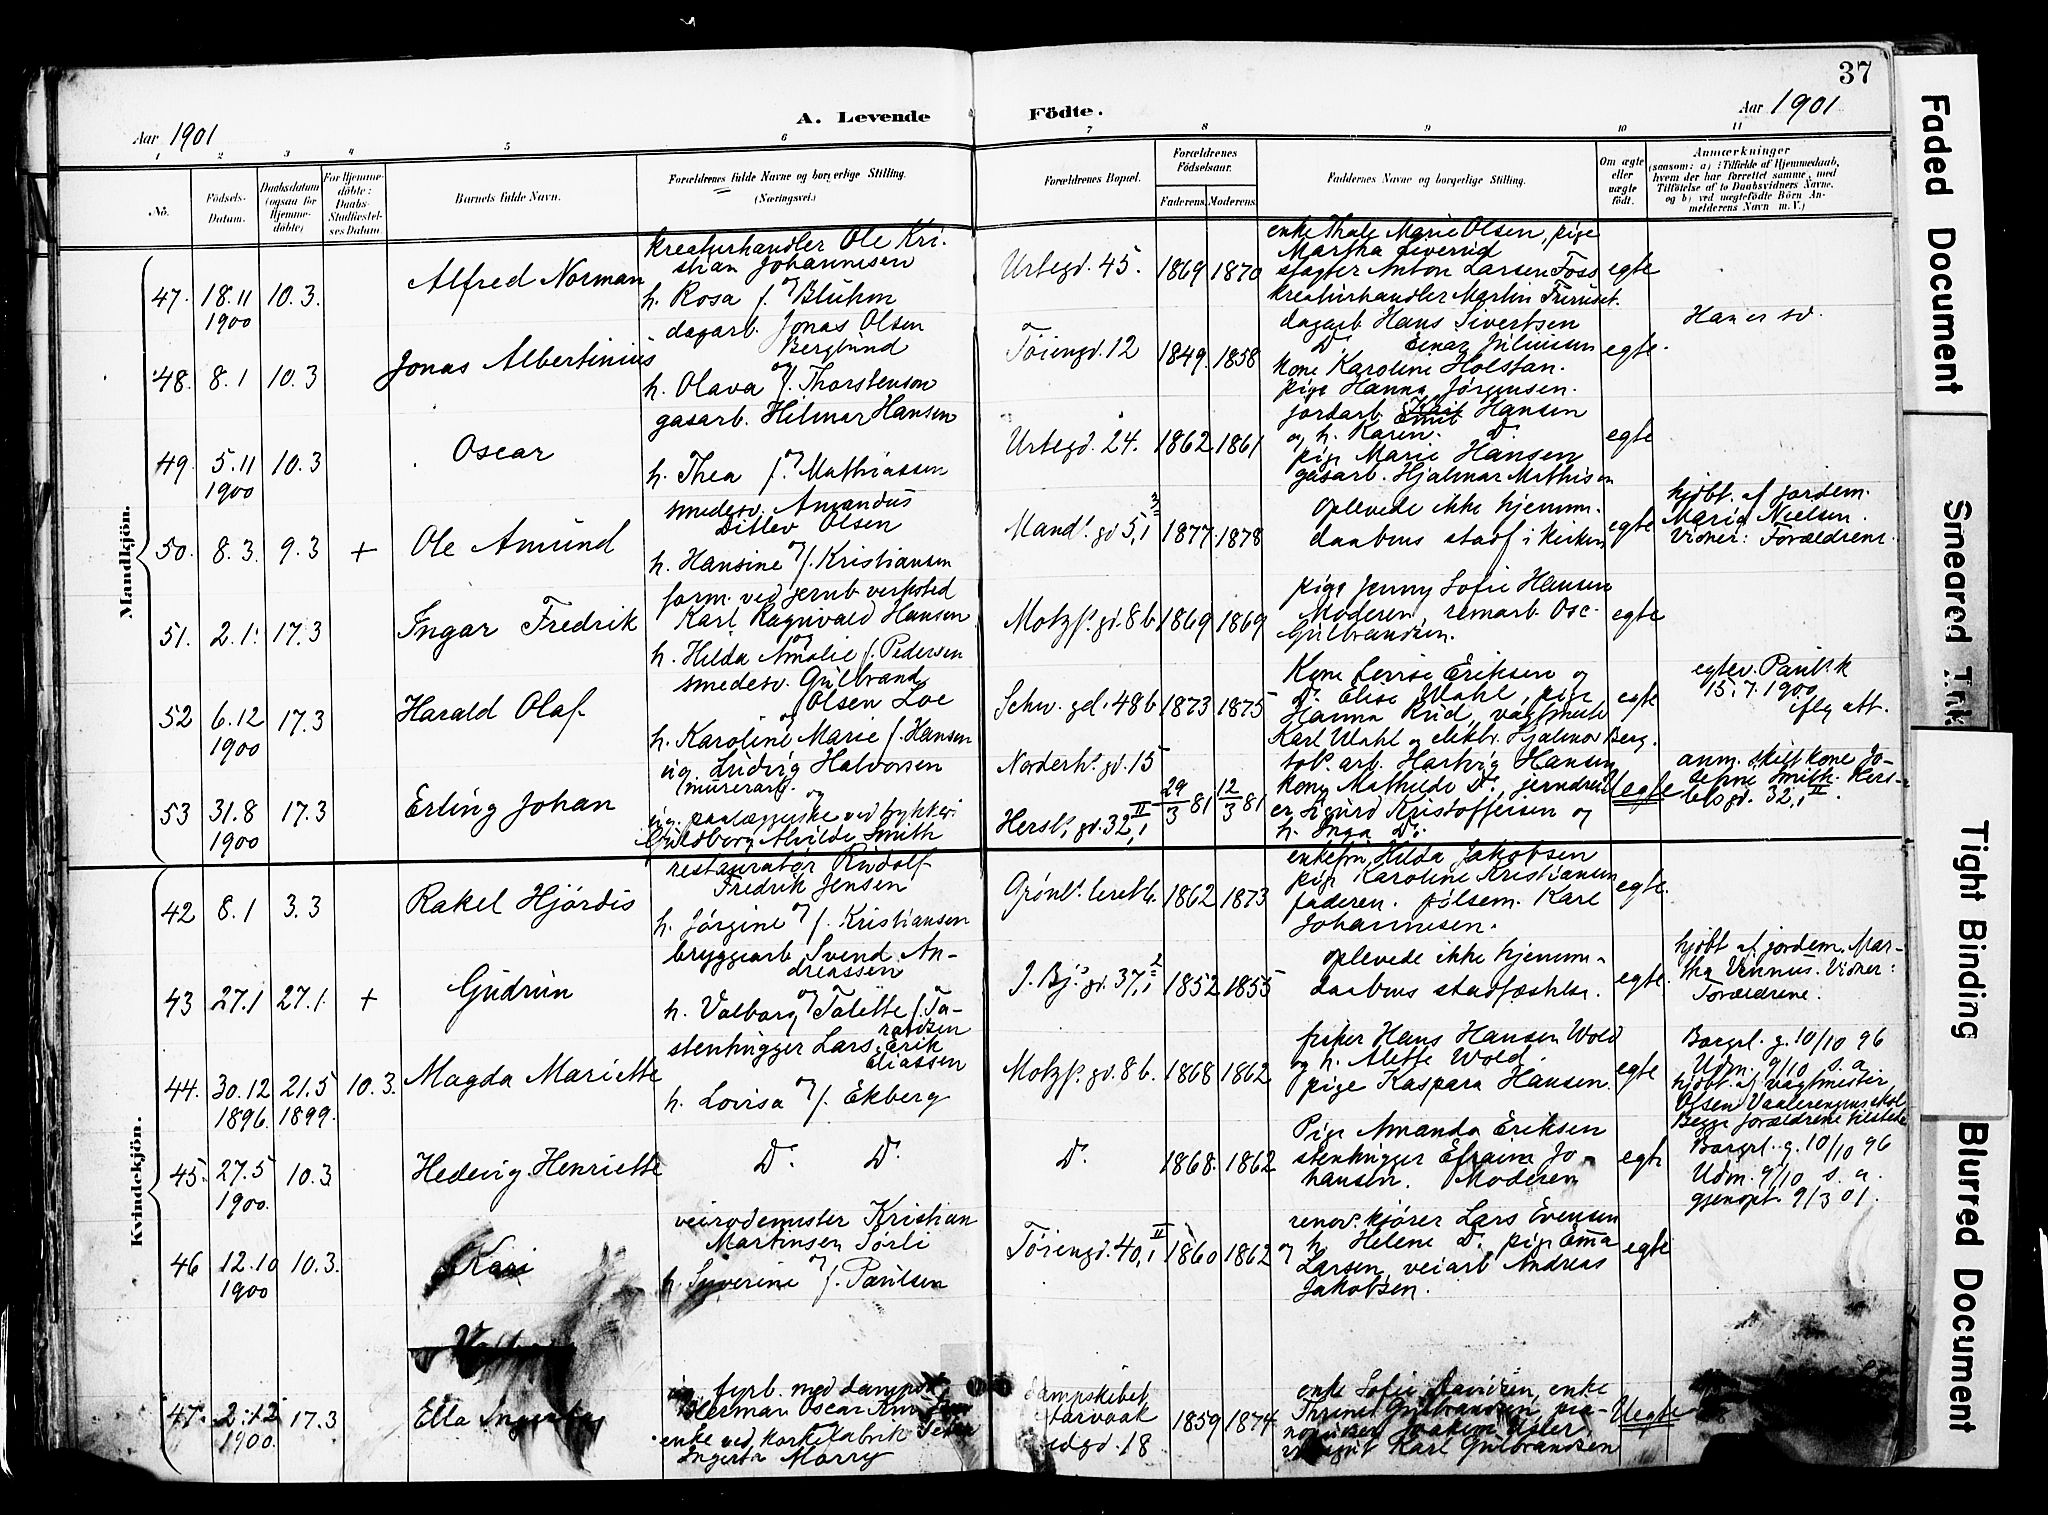 37
Aar 1901
A. Levende Födte.
Aar 1901
1 2 3 4 5 6 7 8 9 10 11
No.
Födsels-
Datum.
Daabsdatum
(ogsaa for
Hjemme-
döbte)
For Hjemme-
döbte:
Daabs-
Stadfæstel-
ses Datum.
Barnets fulde Navn.
Forældrenes fulde Navne og borgerlige Stilling.
(Næringsvei.)
Forældrenes Bopæl.
Forældrenes
Födselsaar.
Faderens. Moderens.
Faddernes Navne og borgerlige Stilling.
Om ægte
eller
uægte
födt.
Anmærkninger
(saasom: a) i Tilfælde af Hjemmedaab,
hvem der har forrettet samme, med
Tilföielse af to Daabsvidners Navne,
og b) ved uægtefödte Börn An-
melderens Navn m. V.)
Mandkjön.
47. 18.11 10.3.
1900
Alfred Norman
kreaturhandler Ole Kri-
stian Johannesen
og
h. Rosa f. Bluhm
Urtegd. 45. 1869 1870
enke Thale Marie Olsen, pige
Martha Siverud
slagter Anton Larsen Foss
kreaturhandler Martin Furuset.
egte
48. 8.1 10.3
Jonas Albertinius
dagarb. Jonas Olsen
Berglund
og
h. Olava f. Thorstenson
Töiengd. 12 1849. 1858
dagarb Hans Sivertsen
D. Einar Juliussen
kone Karoline Holstan.
pige Hanna Jörgensen.
egte.
Han er sv.
49. 5.11 10.3
1900
Oscar
gasarb. Hilmar Hansen
og
h. Thea f. Mathiassen
Urtegd. 24. 1862. 1861
jordarb Emil Hansen
og h. Karen. D.
pige Marie Hansen
gasarb. Hjalmar Mathisen
egte
50. 8.3. 9.3 +
Ole Amund
smedesv. Amandus
Ditlev Olsen
og
h. Hansine f. Kristiansen
Mands gd 5,1 1877. 1878
Oplevede ikke hjemme-
daabens stadf i kirken
egte
hjdbt. af jordem.
Maria Nielsen.
Vidner: Forældrene.
51. 2.1. 17.3
Ingar Fredrik
form. ved jernb verksted
Karl Ragnvald Hansen
og
h. Hilda Amalie f. Pedersen
Motzf. gd. 8b 1869 1869
pige Jenny Sofie Hansen
Moderen, remarb Osc-
Gulbrandsen.
egte
52 6.12 17.3
1900
Harald Olaf
smedesv. Gulbrand
Olsen Loe
og
h. Karoline Marie f. Hansen
Schw. gd. 48b 1873 1875
Kone Lovise Eriksen og
D. Elise Wahl, pige
Hanna Rud, vagtmester
Karl Wahl og elektr. Hjalmar Berg.
egte
egtev. Paul.k
15.7.1900
iflg att.
53 31.8 17.3
1900
Erling Johan
ug. Ludvig Halvorsen
(murerarb.
og
ug. paalæggerske ved trykkeri
Guldborg Alvilde Smith
Norderh. gd. 15
Hersl. gd. 32,1 II
29/3 81 12/3 81
tob. arb. Hartvig Hansen
kone Mathilde D., jerndrei-
er Sigurd Kristoffersen og
h. Inga D.
Uegte
anm. skilt kone Jo-
sefine Smith. Hers-
lebsgd. 32,1 II.
Kvindekjön.
42 8.1 3.3
Rakel Hjördis
restauratör Rudolf
Fredrik Jensen
og
h. Jörgine f. Kristiansen
Grönl. leret 6. 1862 1873
enkefru Hilda Jakobsen
pige Karoline Kristiansen
faderen. pölsem. Karl
Johannesen.
egte.
43 27.1 27.1. +
Gudrun
bryggearb. Svend An-
dreassen
og
h. Valborg Talette f. Ta-
raldsen
J. Bj. gd. 37,1 1852 1855
oplevede ikke hjemme-
daabens stadfæstelse.
egte.
hjdbt af jordem. Mar-
tha Vennus. Vidner:
Forældrene.
44. 30.12 21.5 10.3.
1896. 1899.
Magda Mariette
stenhugger Lars Erik
Eliassen
og
h. Lovisa f. Ekberg
Motzf. gd. 8b. 1868 1862
fisker Hans Hansen Wold
og h. Alette Wold.
pige Kaspara Hansen.
egte
Borgrl. g. 10/10 96
Udm. 9/10 s. a.
hjdbt. af vagtmester
Olsen Vaalerengens skol
Begge forældrene tilstede
45. 27.5 10.3
1900.
Hedevig Henriette
D. D.
D. 1868. 1862
Pige Amanda Eriksen
stenhugger Efraim Jo-
hansen. Moderen
egte
Borgrl. g. 10/10 96
Udm. 9/10 s. a.
gjenopt. 9/3 01.
46 12.10 10.3.
1900
Kari
veirodemester Kristian
Martinsen Sörli
og
h. Syverine f. Paulsen
Töiengd. 40,1 II 1860 1862
renov. kjörer Lars Evensen
og h. Helene D. pige Ema
Larsen, veiarb Andreas
Jakobsen.
egte
47. 2.12 17.3
1900.
Ella
ug. fyrb. med dampsk.
Herman Oscar
enke ved korkefabrik
Ingerta Marry
dampskibet
gd. 18
1859 1874
enke Sofie Davidsen, enke
Thrine Gulbrandsen
Karl Gulbrandsen
Uegte
Faded Document
Smeared Ink
Tight Binding
Blurred Document